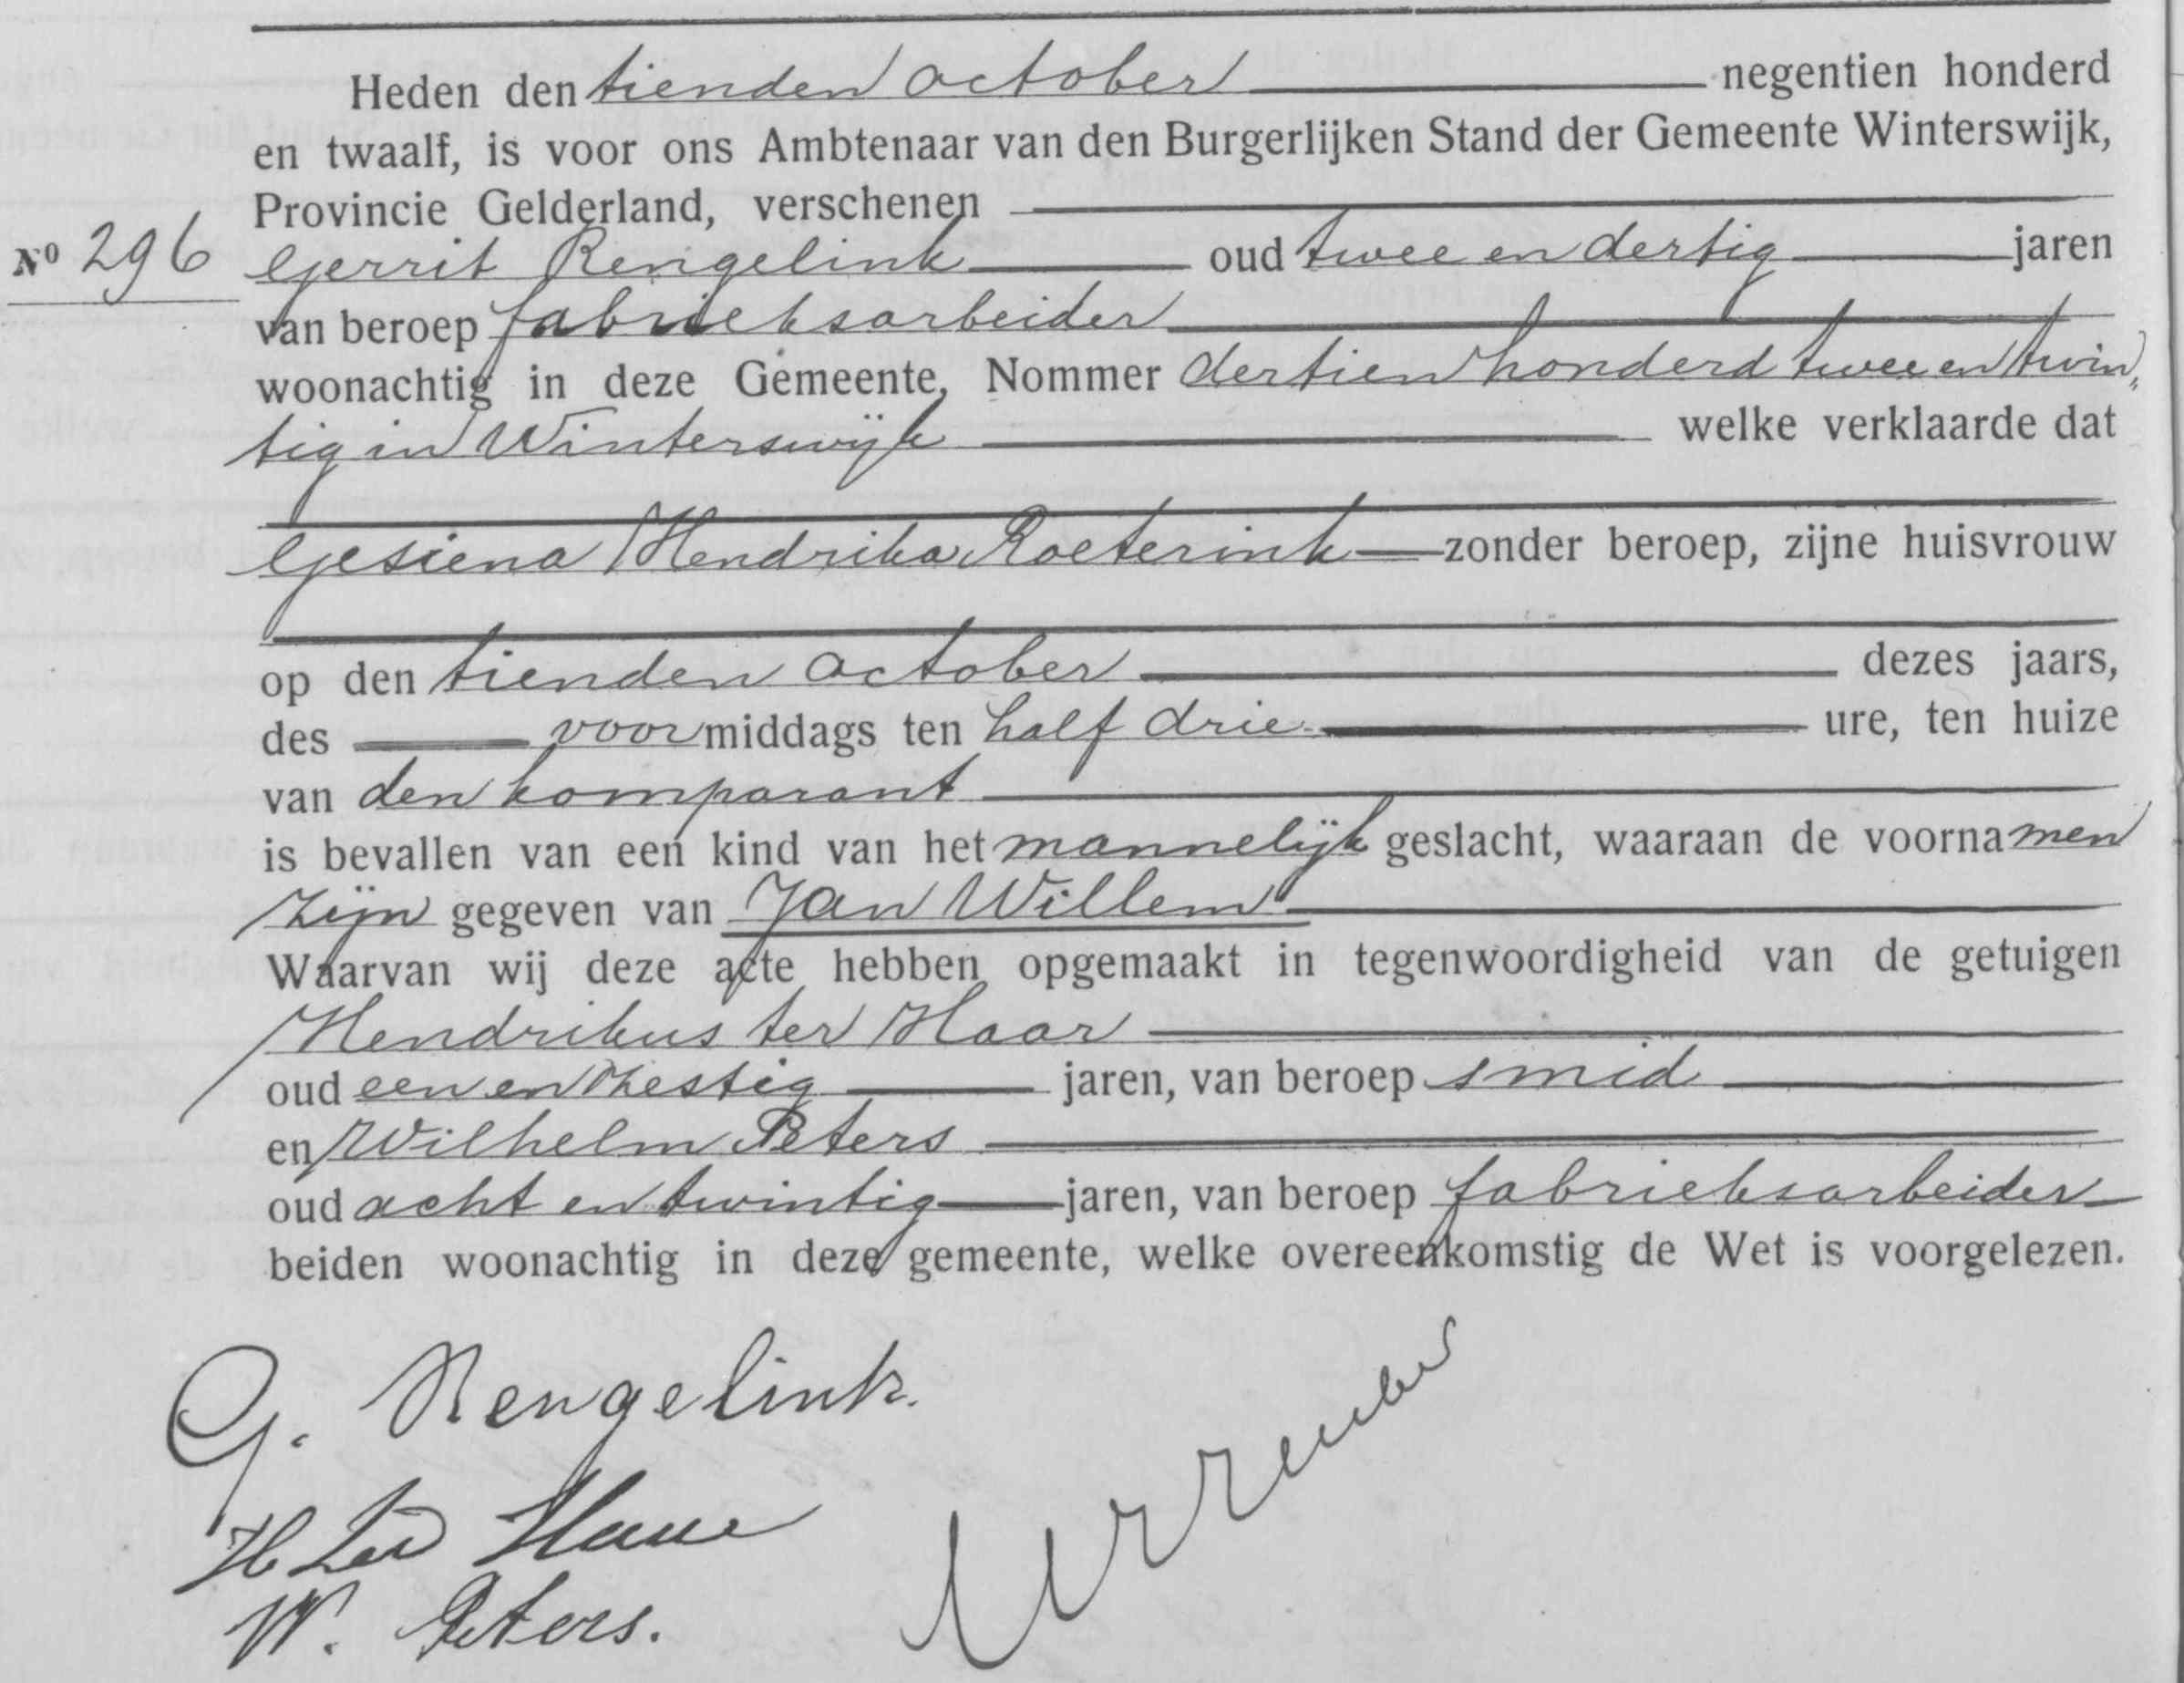 Heden den tienden october negentien honderd
en twaalf, is voor ons Ambtenaar van den Burgerlijken Stand der Gemeente Winterswijk,
Provincie Gelderland, verschenen
Nº 296 Gerrit Rengelink oud twee en dertig jaren
van beroep fabrieksarbeider
woonachtig in deze Gemeente, Nommer dertien honderd twee en twin„
tig in Winterswijk welke verklaarde dat
Gesiena Hendrika Roeterink zonder beroep, zijne huisvrouw
op den tienden october dezes jaars,
des voormiddags ten half drie ure, ten huize
van den komparant
is bevallen van een kind van het mannelijk geslacht, waaraan de voornamen
zijn gegeven van Jan Willem
Waarvan wij deze acte hebben opgemaakt in tegenwoordigheid van de getuigen
Hendrikus ter Haar
oud een en zestig jaren, van beroep smid
en Wilhelm Peters
oud acht en twintig jaren, van beroep fabrieksarbeider
beiden woonachtig in deze gemeente, welke overeenkomstig de Wet is voorgelezen.
G. Rengelink.
H ter Haar
W. Peters.